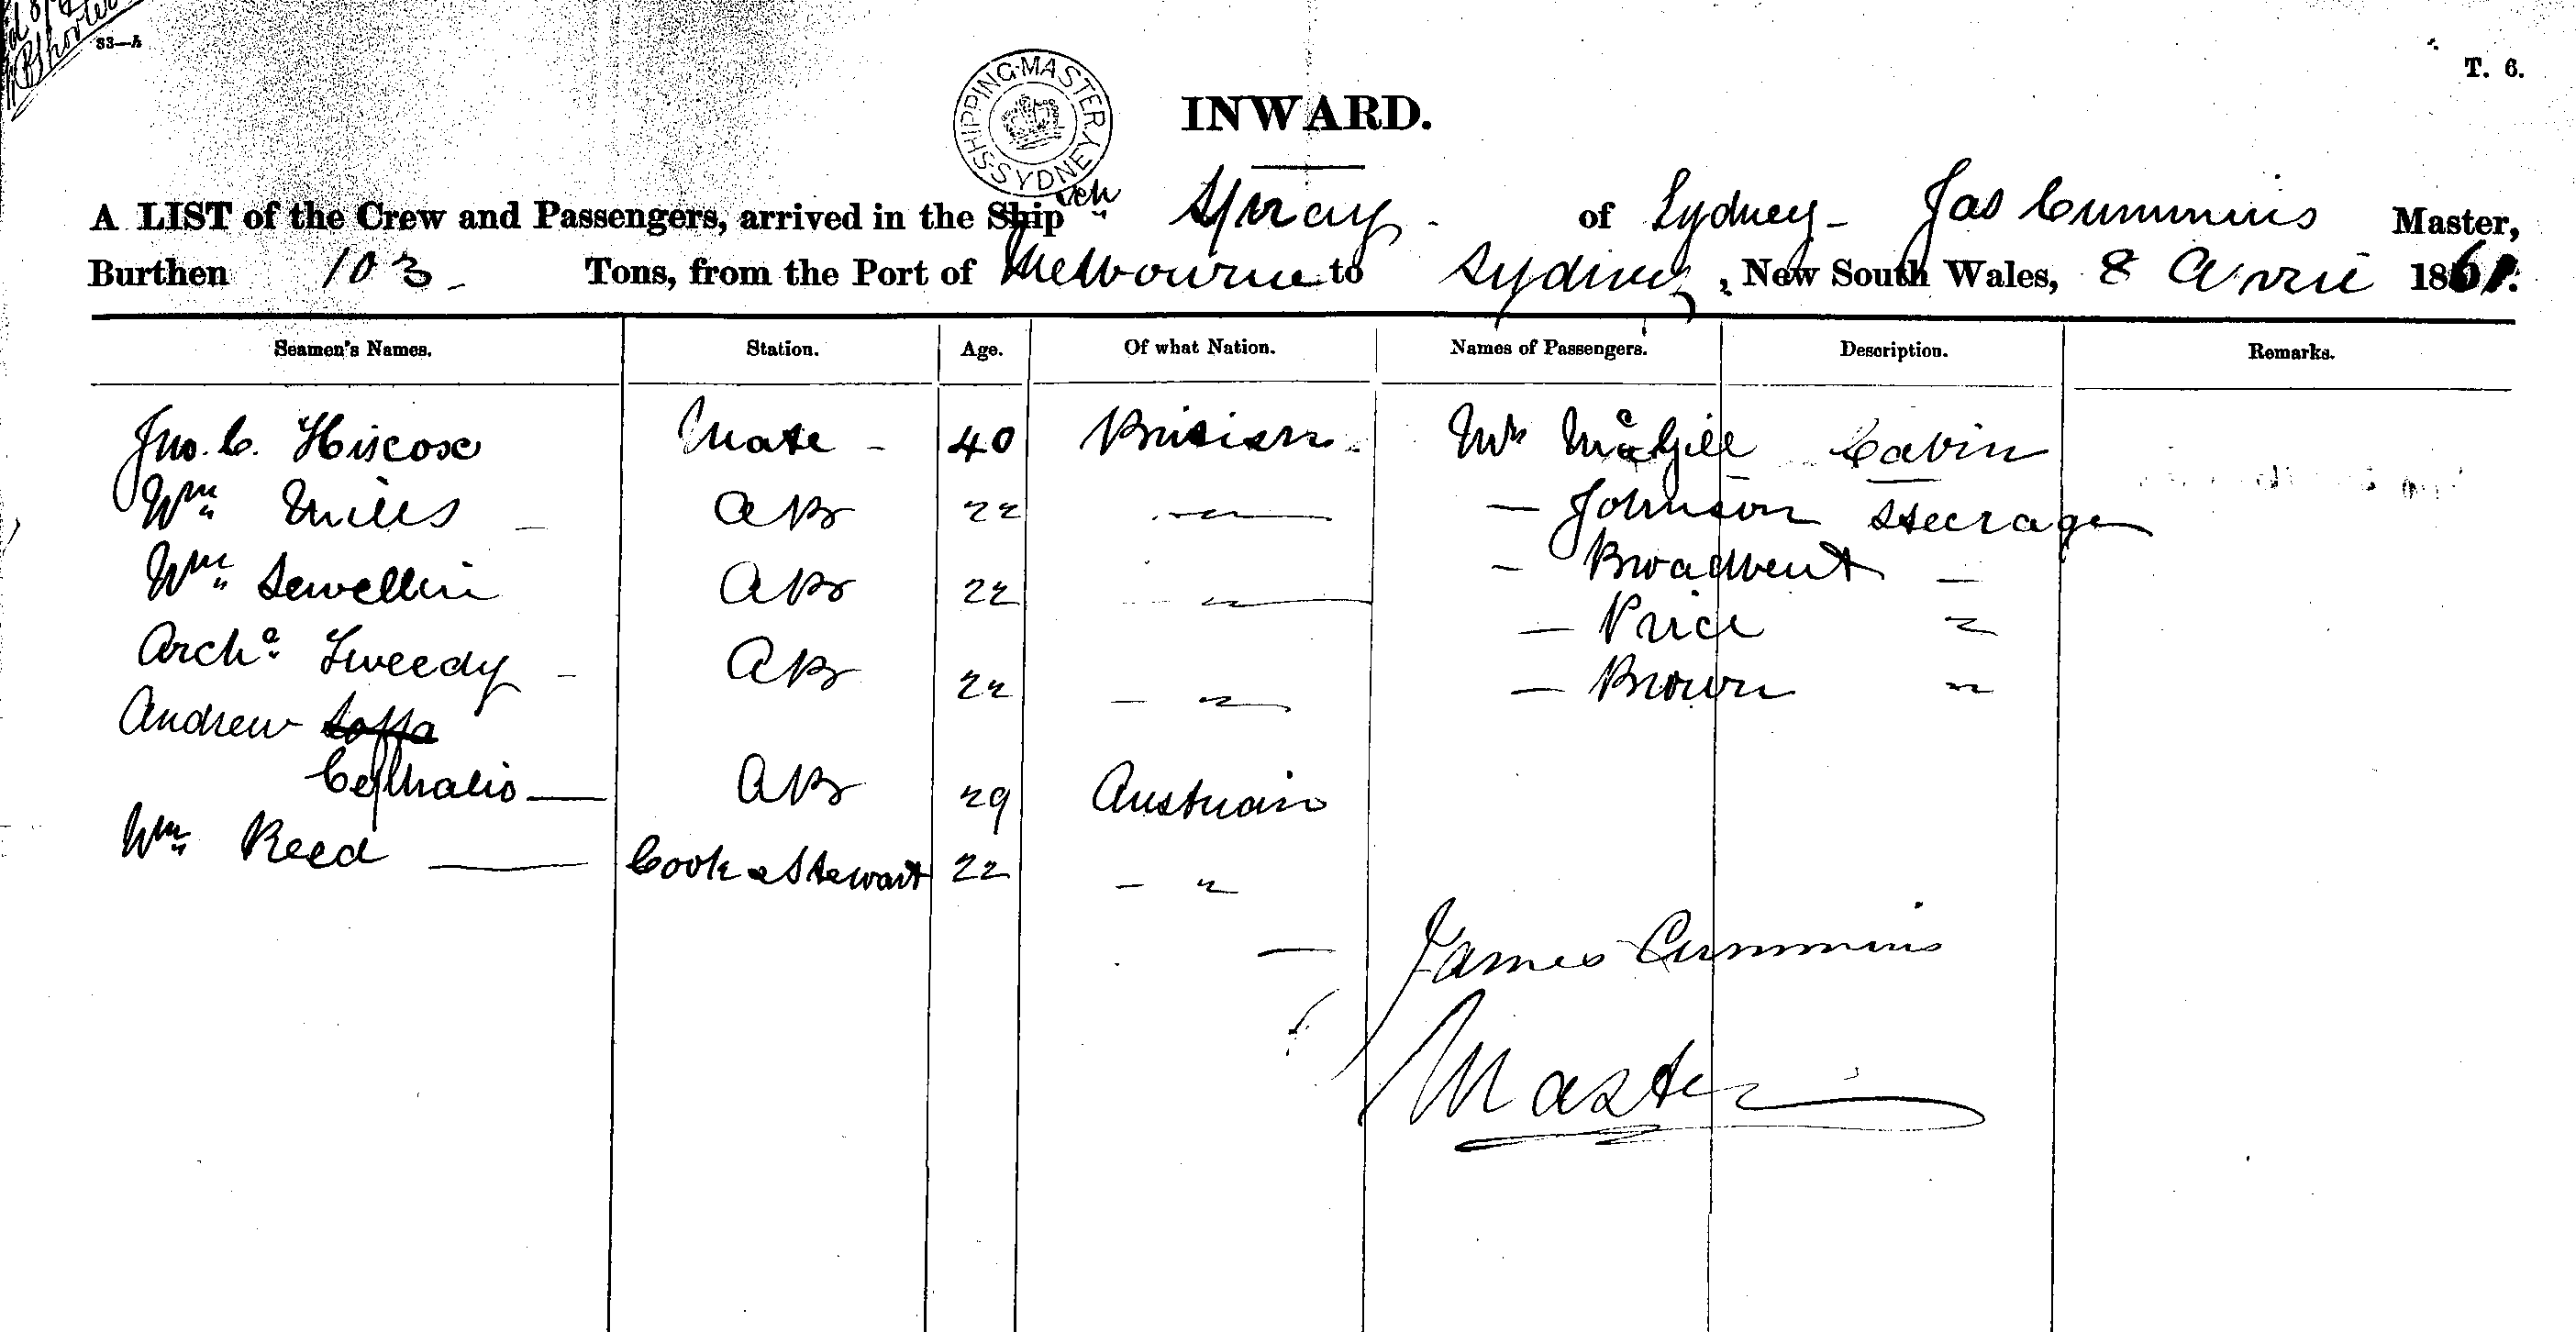 33—h
T. 6.
SHIPPING MASTER SYDNEY
INWARD.
A LIST of the Crew and Passengers, arrived in the Ship Sch Spray - of Sydney - Jas Cummins Master,
Burthen 103 - Tons, from the Port of Melbourne to Sydney, New South Wales, 8 April 1861.
Seamen's Names. Station. Age. Of what Nation. Names of Passengers. Description. Remarks.
Jno. C. Hiscox Mate - 40 British Mr McGill Cabin
Wm Mills - AB 22 — " — — Johnson Steerage
Wm Lewellin AB 22 — " — - Broadbent —
Archd Tweedy - AB 22 — " — Price "
Andrew — Brown "
Cephalio — AB 29 Austrian
Wm Reed — Cook & Stewart 22 — "
— James Cummins
Master